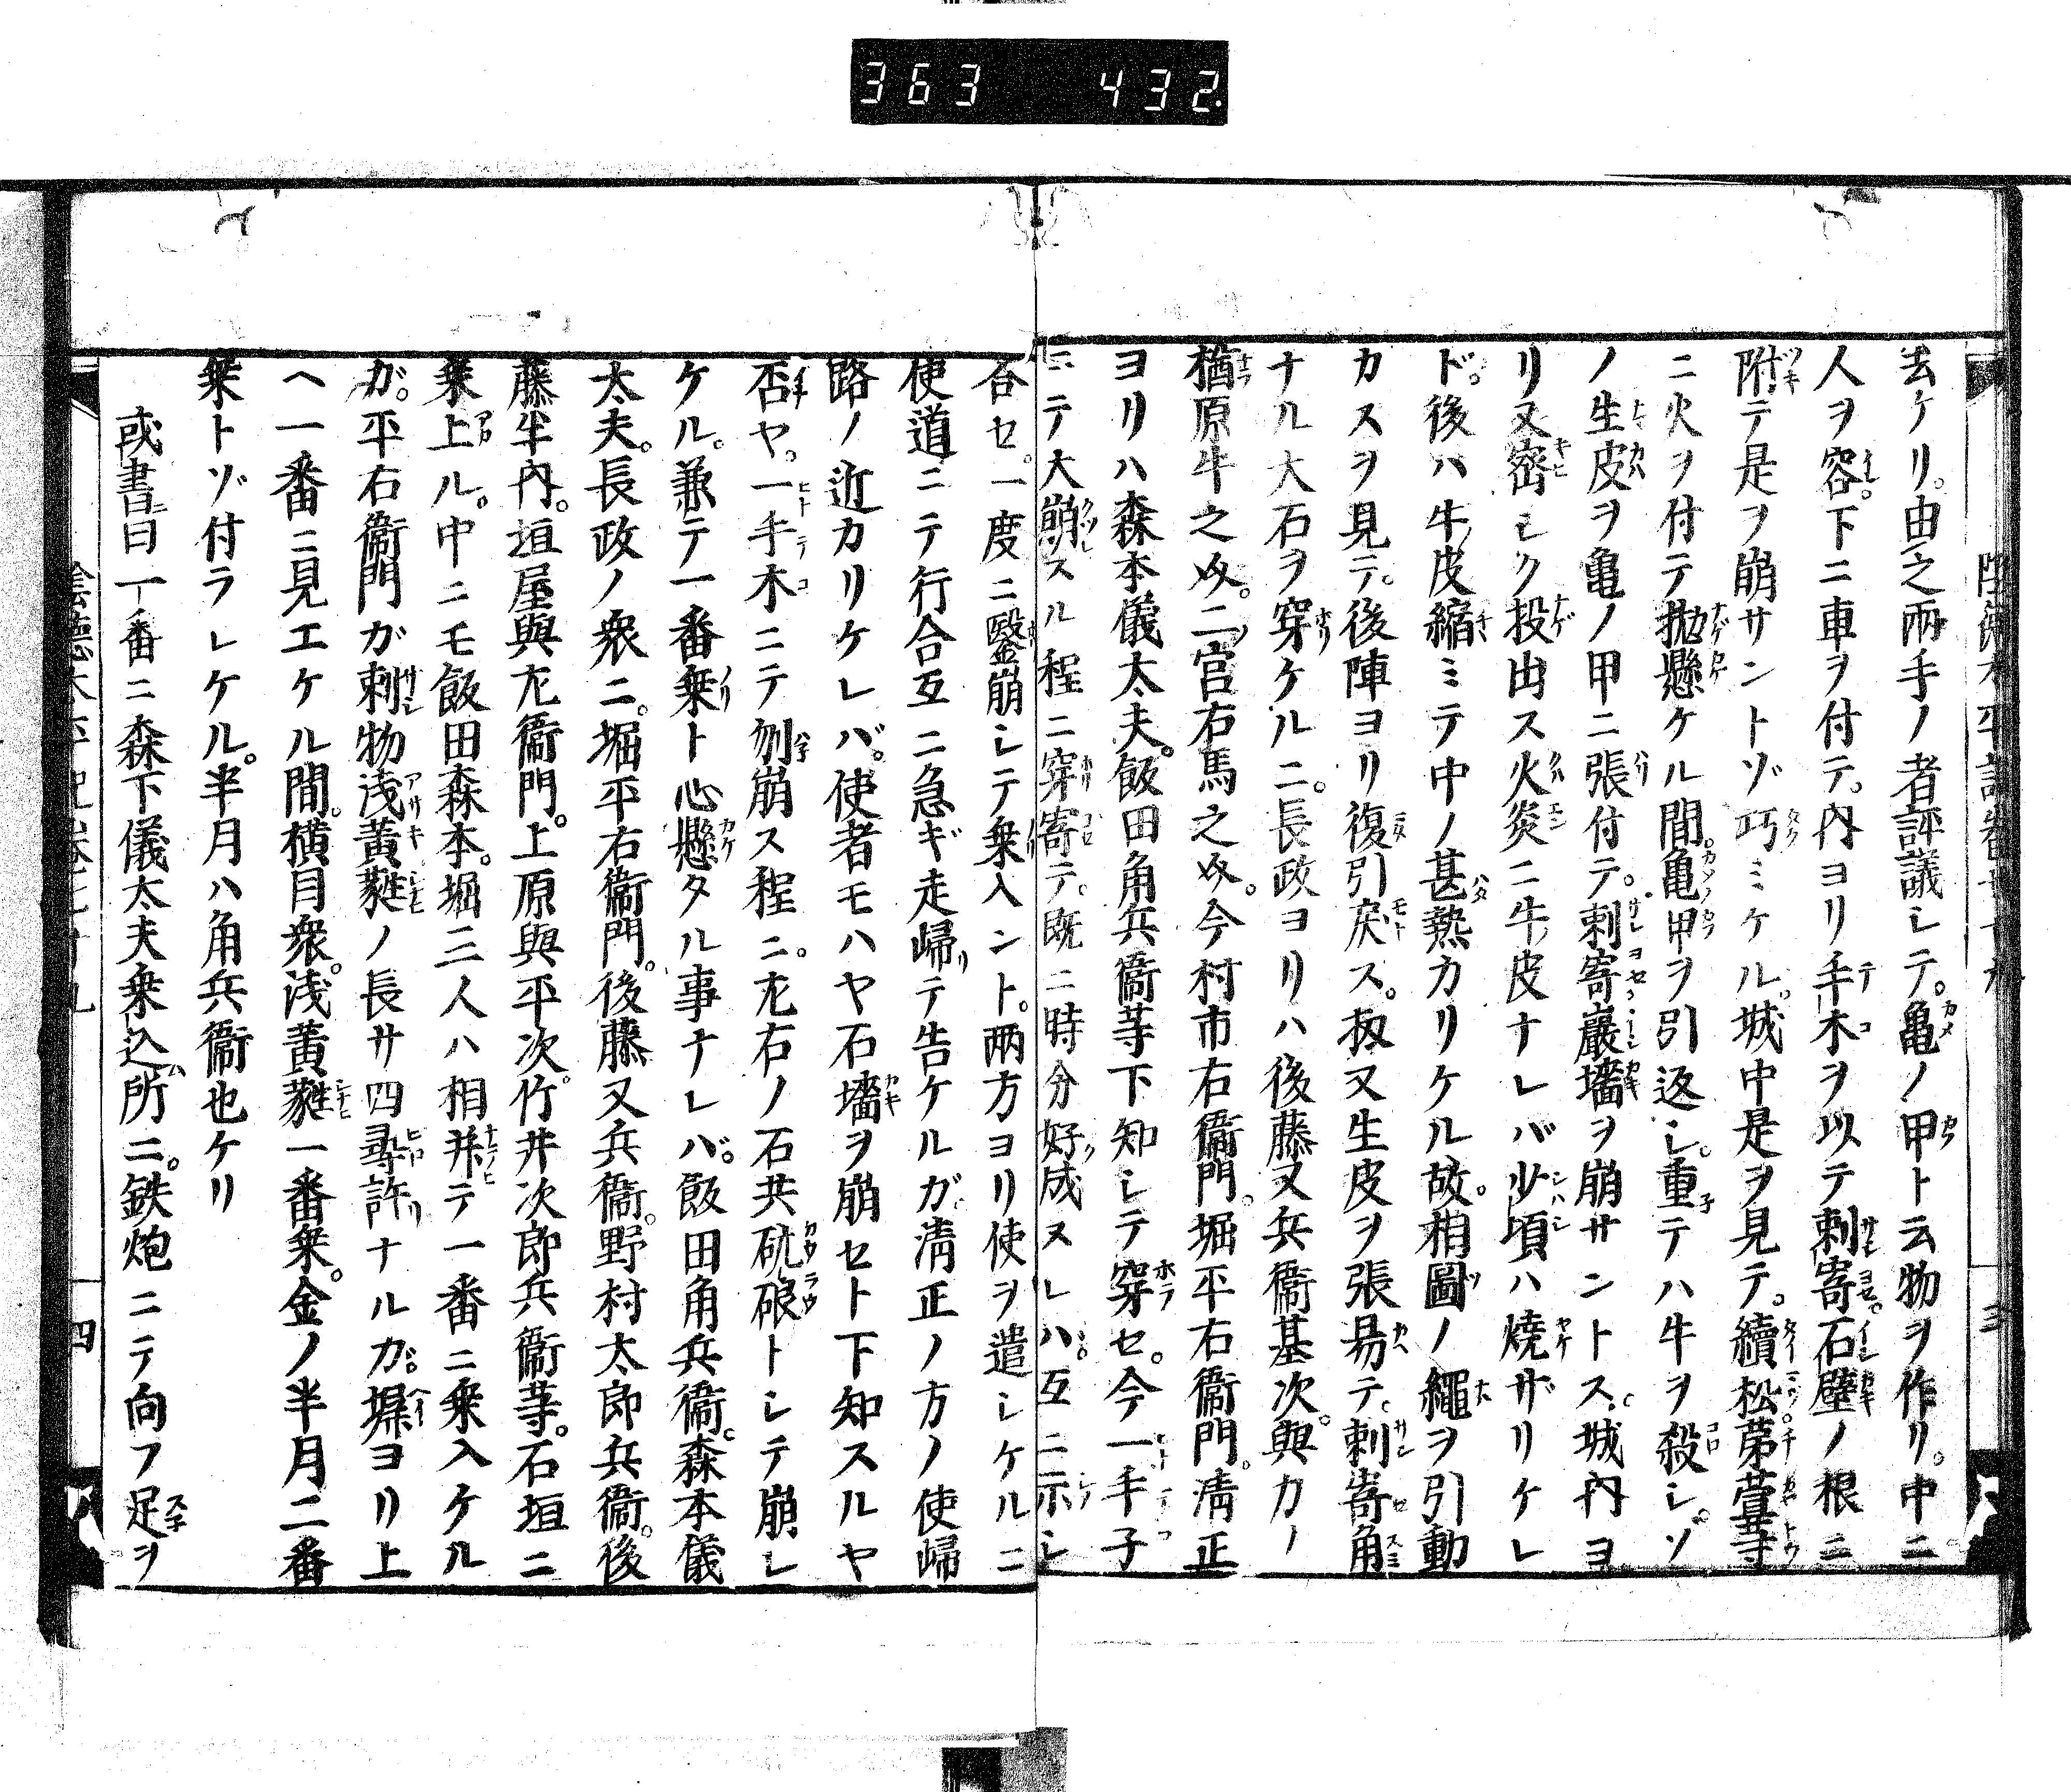 363 432
去ケリ。由之兩手ノ者評議シテ。亀ノ甲ト云物ヲ作リ。中ニ
人ヲ容。下ニ車ヲ付テ。内ヨリ手木ヲ以テ刺寄。石壁ノ根ニ
附テ是ヲ崩サントゾ巧ミケル。城中是ヲ見テ。續松茅萱等
ニ火ヲ付テ抛懸ケル間。亀甲ヲ引返シ。重テハ牛ヲ殺シ。ソ
ノ生皮ヲ亀ノ甲ニ張付テ。刺寄巖墻ヲ崩サントス。城内ヨ
リ又密シク投出ス火炎ニ牛皮ナレバ少頃ハ焼ザリケレ
ド。後ハ牛皮縮ミテ中ノ甚熱カリケル故。相圖ノ縄ヲ引動
カスヲ見テ。後陣ヨリ復引戻ス。扨又生皮ヲ張易テ。刺寄角
ナル大石ヲ穿ケルニ。長政ヨリハ後藤又兵衞基次。與力ノ
楢原牛之介。二宮右馬之介。今村市右衞門。堀平右衞門。清正
ヨリハ森本儀太夫。飯田角兵衞等下知シテ穿セ。今一手子
ニテ大崩スル程ニ穿寄テ。既ニ時分好成ヌレバ。互ニ示シ
合セ。一度ニ鑿崩シテ乗入ント。两方ヨリ使ヲ遣シケルニ
使道ニテ行合互ニ急ギ走歸テ告ケルガ。清正ノ方ノ使歸
路ノ近カリケレバ。使者モハヤ石墻ヲ崩セト下知スルヤ
否ヤ。一手木ニテ刎崩ス程ニ。左右ノ石共砿硠トシテ崩レ
ケル。兼テ一番乗ト心懸タル事ナレバ。飯田角兵衞。森本儀
太夫。長政ノ衆ニ。堀平右衞門。後藤又兵衞。野村太郎兵衞。後
藤半内。垣屋與左衞門。上原與平次。竹井次郎兵衞等。石垣ニ
乗上ル。中ニモ飯田森本。堀三人ハ相并テ一番ニ乗入ケル
ガ。平右衞門ガ刺物浅黄蕤ノ長サ四尋許ナルガ。塀ヨリ上
ヘ一番ニ見エケル間。横目衆。浅黄蕤一番乗。金ノ半月二番
乗トゾ付ラレケル。半月ハ角兵衞也ケリ
或書曰一番ニ森下儀太夫乗込所ニ。鉄炮ニテ向フ足ヲ
三
四